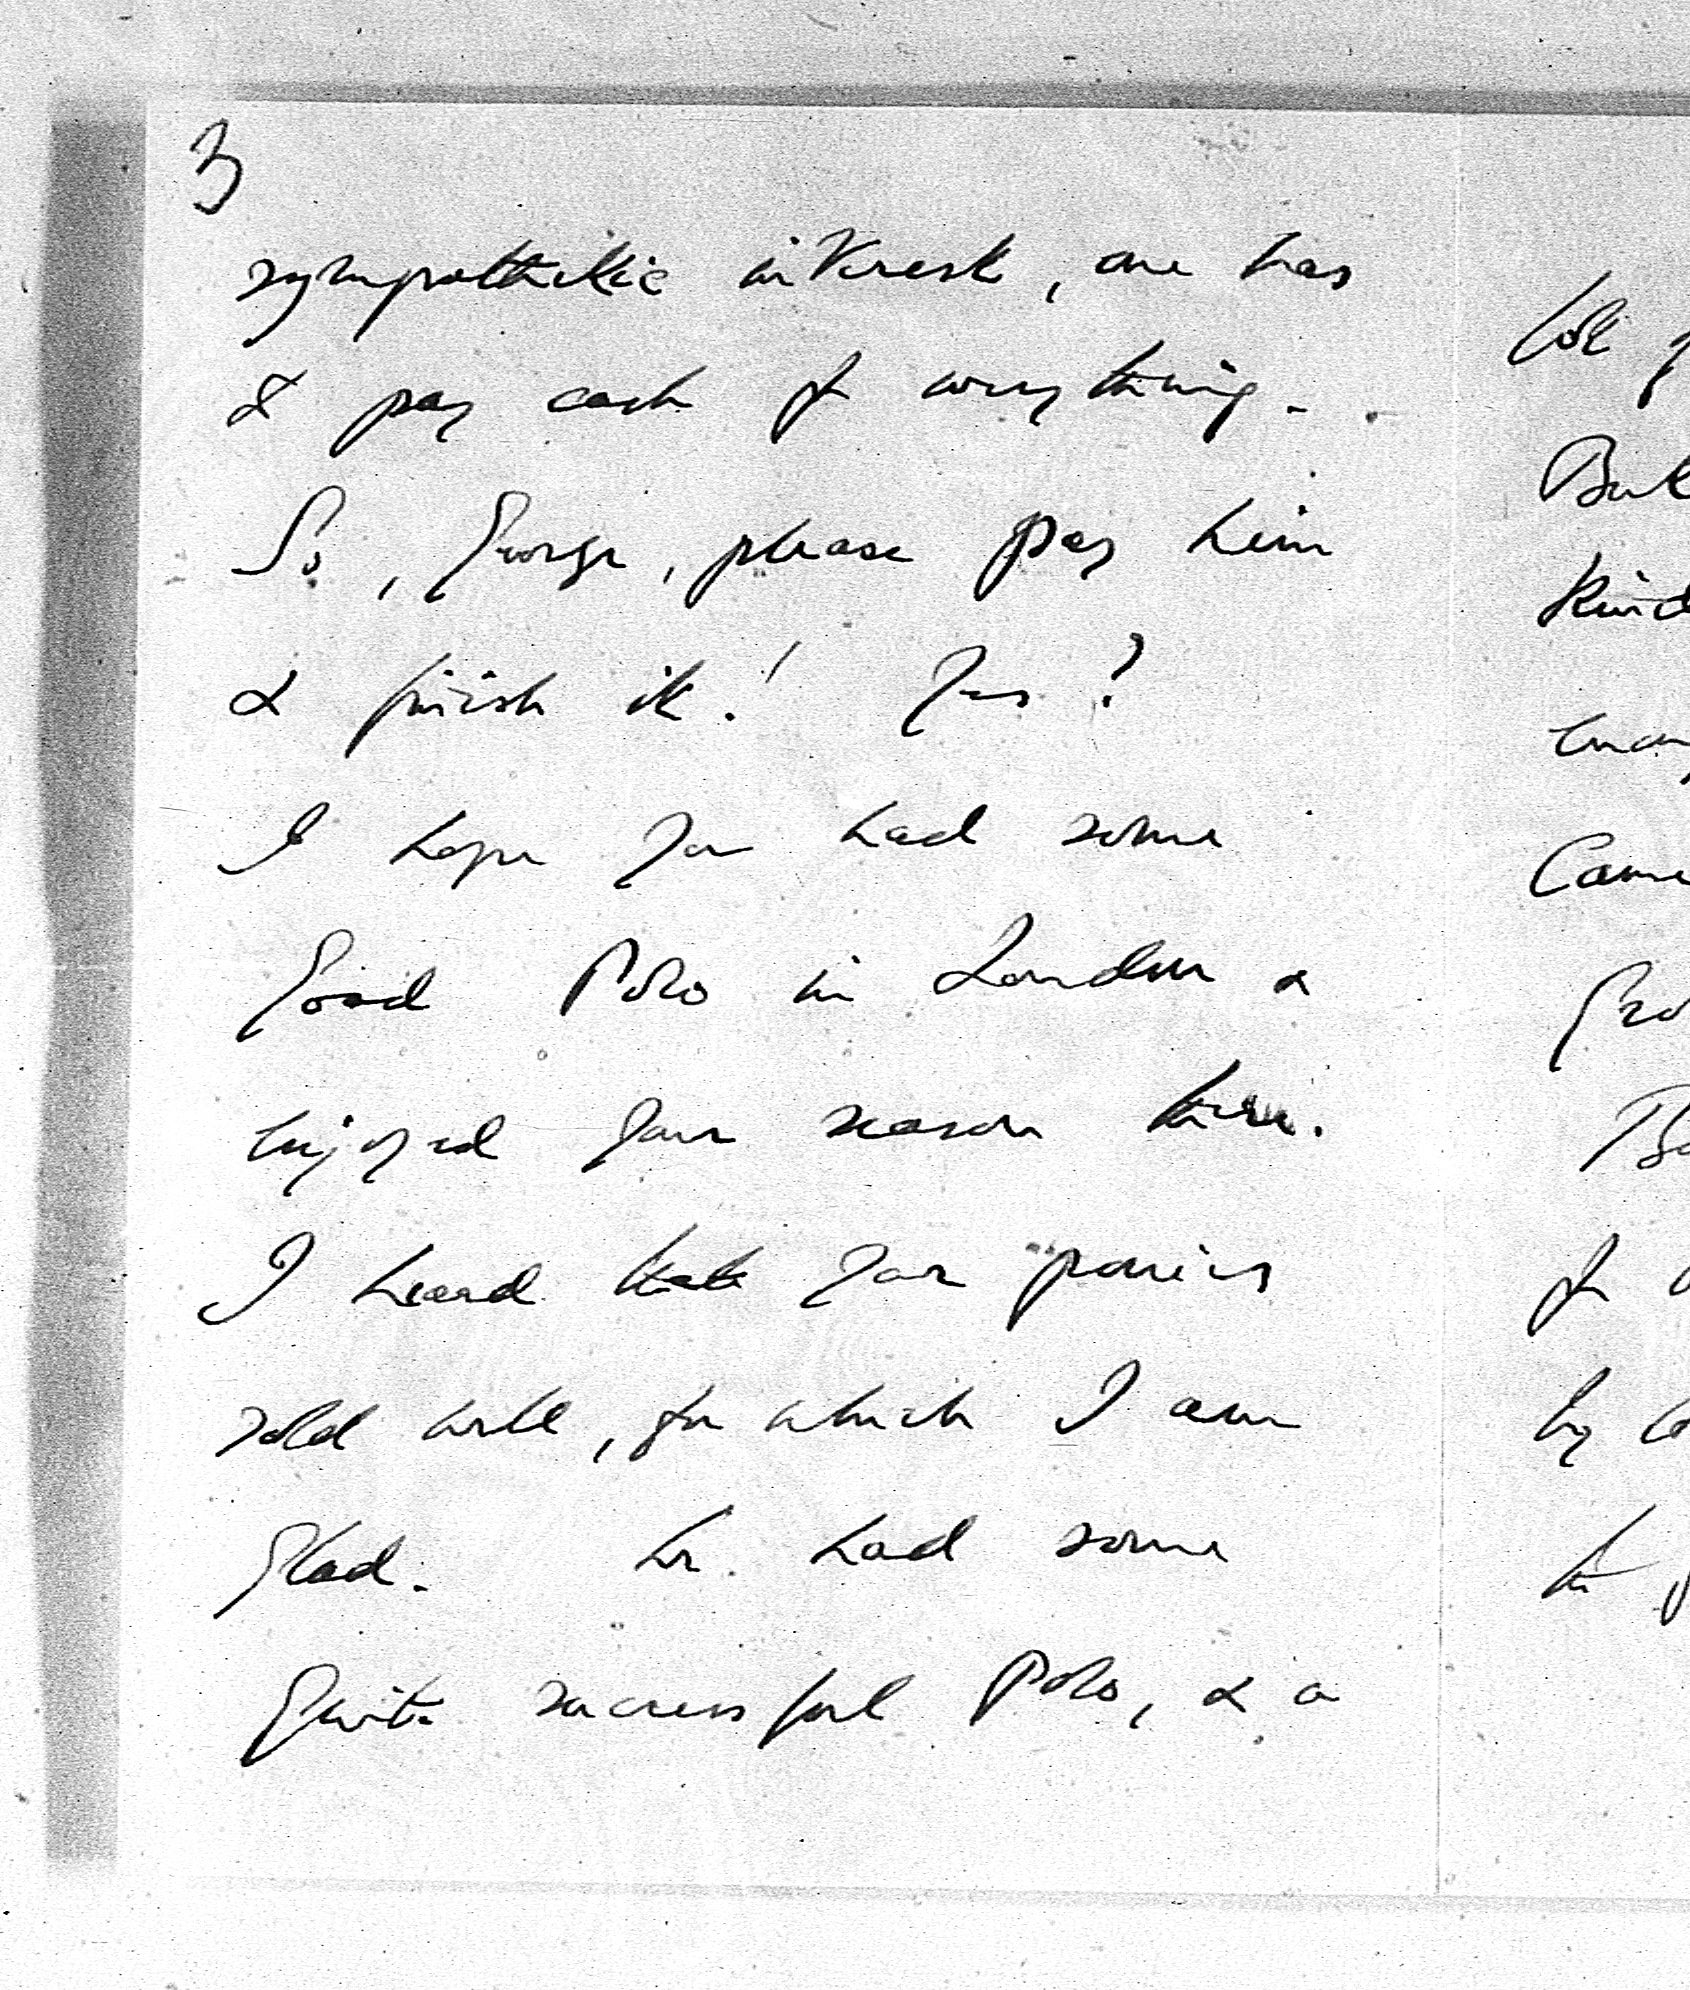 3
sympathetic interest, one has
to pay cash for everything.
So, George, please pay him
& finish it! Yes?
I hope you had some
good Polo in London &
enjoyed your season there.
I heard that your ponies
sold well, for which I am
glad. We had some
quite successful Polo, & a
lot
But
kind
many
Came
for
by
the